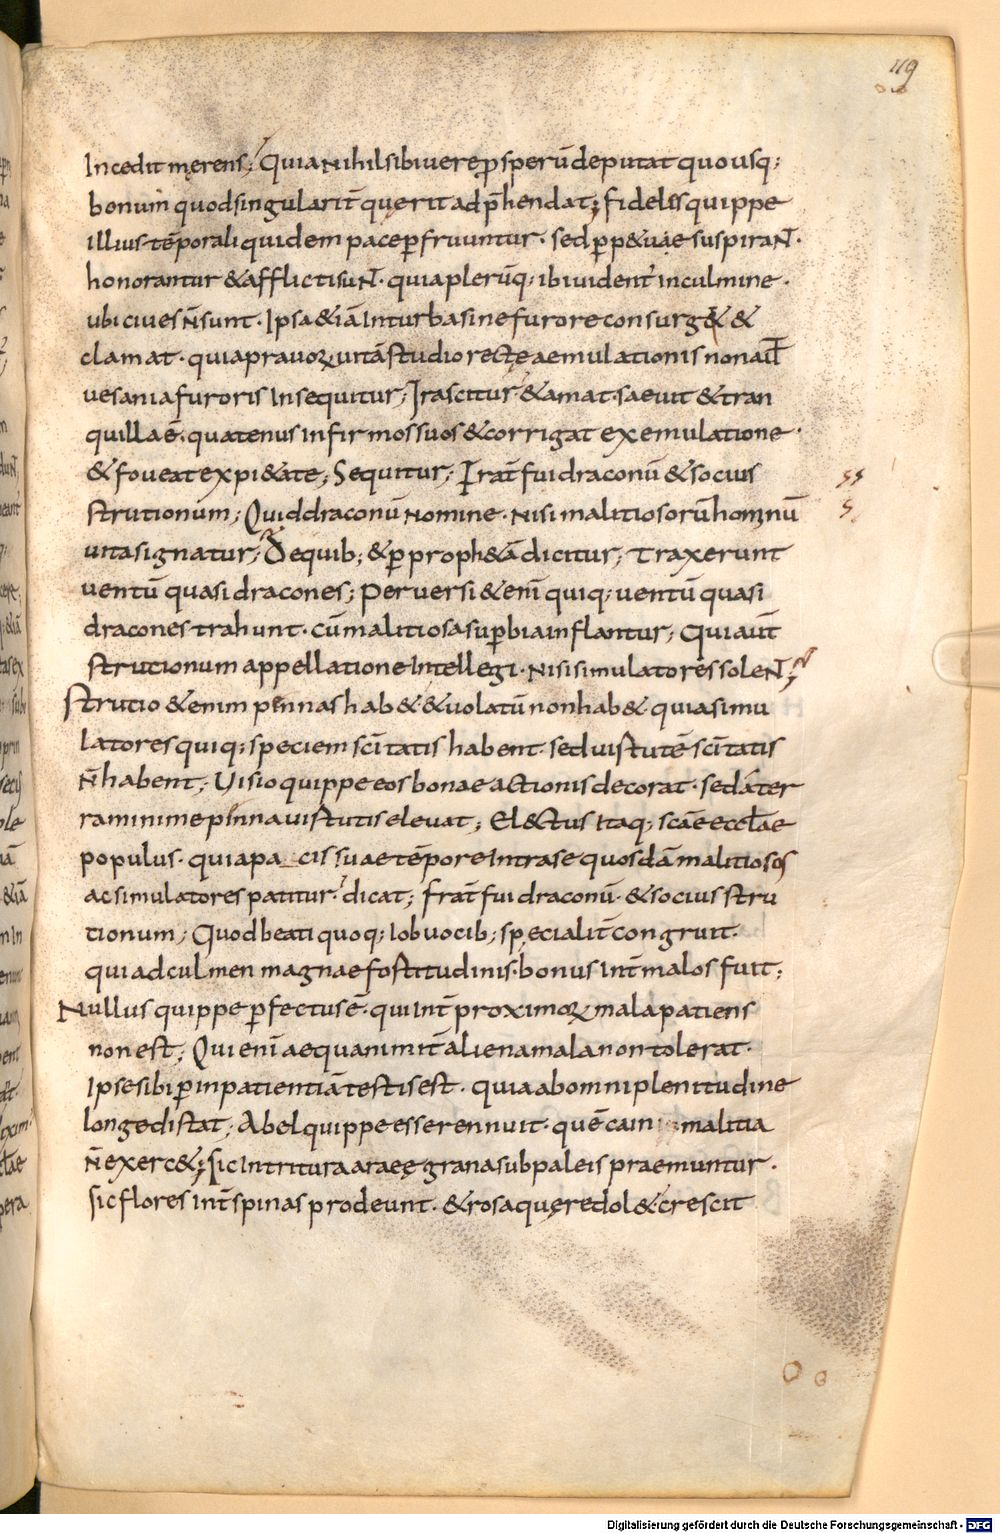 119
Incedit męrens; Quia nihil sibi uere ꝓsperū deputat quo usq;
bonum quod singularit̄ querit ad p̄hendat; fideles quippe
illius tēporali quidem pace ꝑfruuntur· sed ꝓp&uae suspiraɴ̄t·
honorantur & afflicti suɴ̄t· quia plerūq; ibi uident᷑ in culmine·
ubi ciues n̄ sunt· Ipsa &iā In turba sine furore consurg& &
clamat· quia prauoꝝ uitā studio rectę aemulationis non aut̄
uesania furoris Insequitur; Irascitur & amat· saeuit & tran
quilla ē· quatenus infirmos suos & corrigat ex emulatione·
& foueat ex pi&ate; Sequitur; Frat̄ fui draconū & socius
strutionum; Quid draconū nomine· nisi malitiosorū hominū
uita signatur; De quib; & ꝑ proph&ā dicitur; Traxerunt
uentū quasi dracones; Peruersi &enī quiq; uentū quasi
dracones trahunt· cū malitiosa suꝑbia inflantur; Qui aut̄
strutionum appellatione Intellegi· nisi simulatores soleɴ̄t;
Strutio &enim pennas hab& & uolatū non hab& quia simu
latores quiq; speciem sc̄itatis habent· sed uirtutē sc̄itatis
n̄ habent; Uisio quippe eos bonae actionis decorat· sed a ter
ra minime pinna uirtutis eleuat; Electus Itaq; sc̄ae eccl̄ae
populus· quia pa cis suae tēpore Intra se quosdā malitiosos
ac simulatores patitur· dicat; frat̄ fui draconū· & socius stru
tionum; Quod beati quoq; Iob uocib; specialit̄ congruit·
qui ad culmen magnae fortitudinis· bonus Int̄ malos fuit;
Nullus quippe ꝑfectus ē· qui Int̄ proximoꝝ mala patiens
non est; Qui enī aequanimit̄ aliena mala non tolerat·
Ipse sibi ꝑ inpatientiā testis est· quia ab omni plenitudine
longe distat; Abel quippe esse rennuit· quē cain malitia
n̄ exerc&; Sic In tritura araeę grana sub paleis praemuntur·
sic flores int̄ spinas prodeunt· & rosa quę redol& crescit
Digitalisierung gefördert durch die Deutsche Forschungsgemeinschaft - DFG